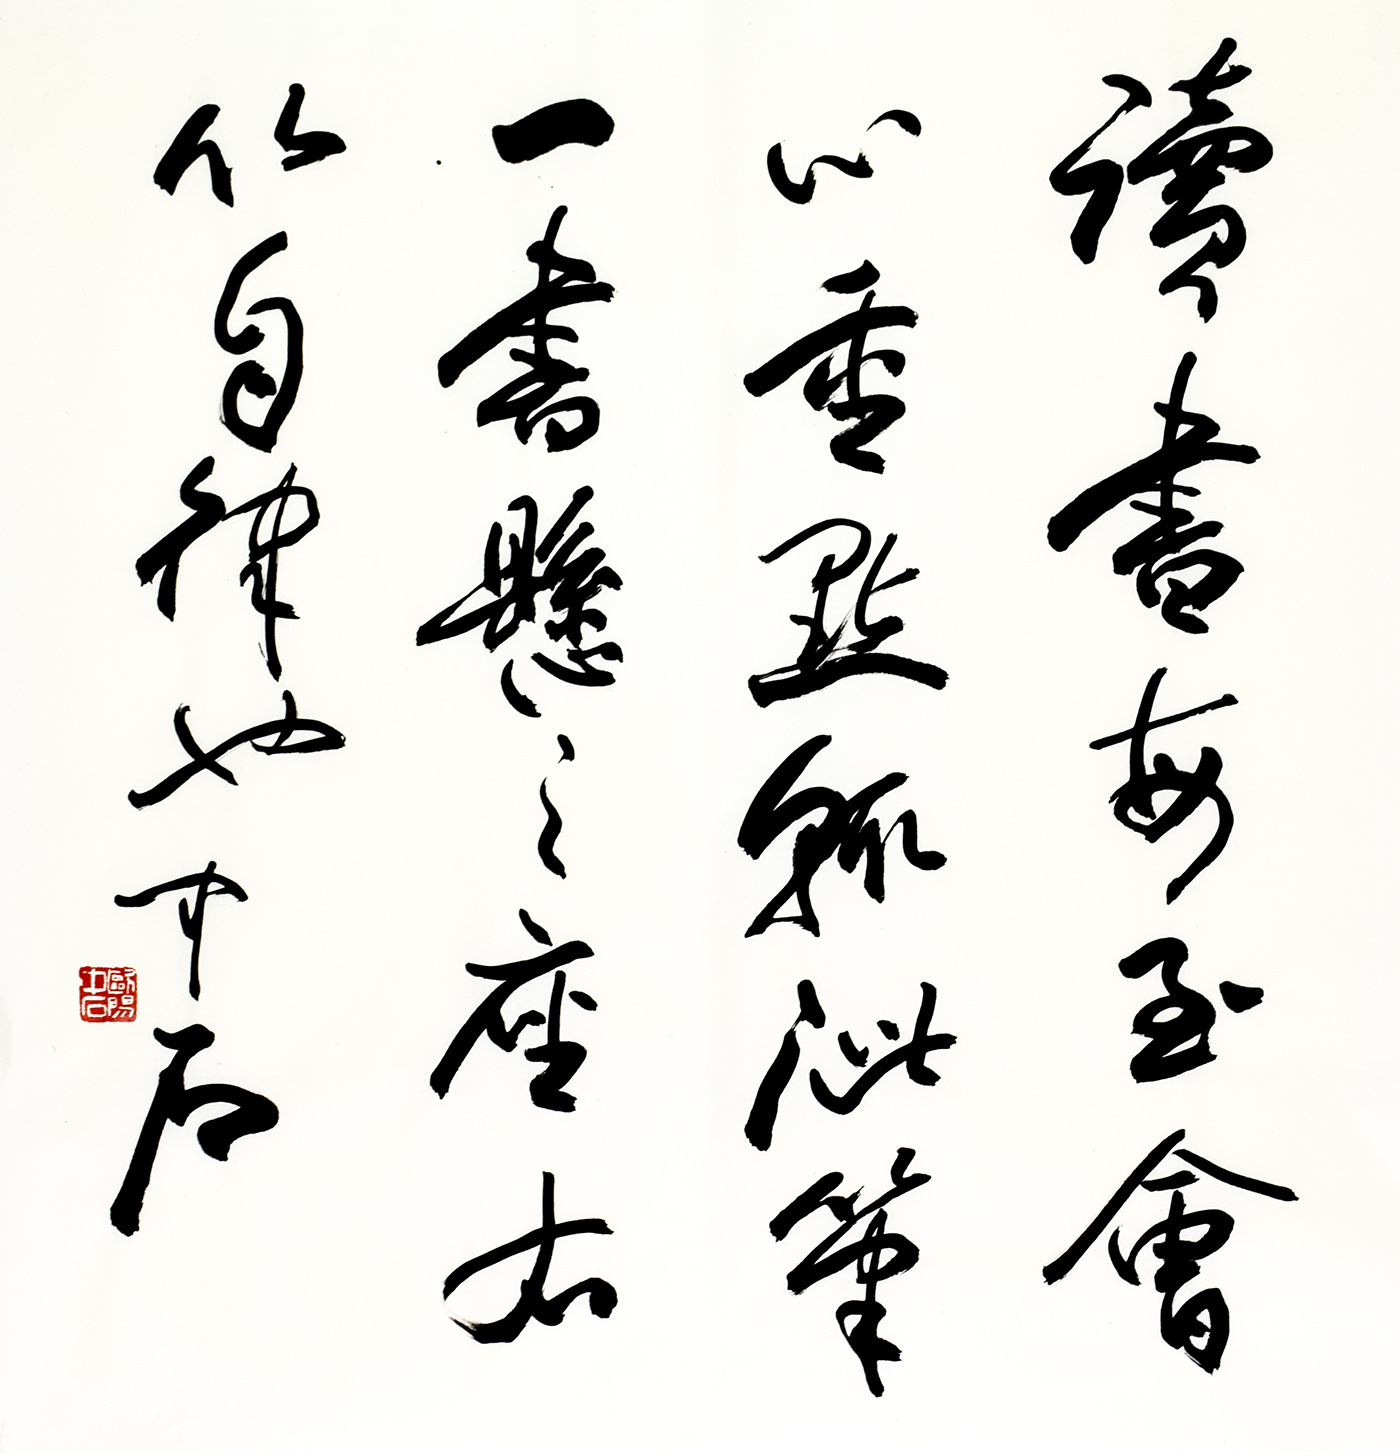 讀書每至會
心重點輒泚筆
一書懸之座右
以自律也 中石
歐陽
中石